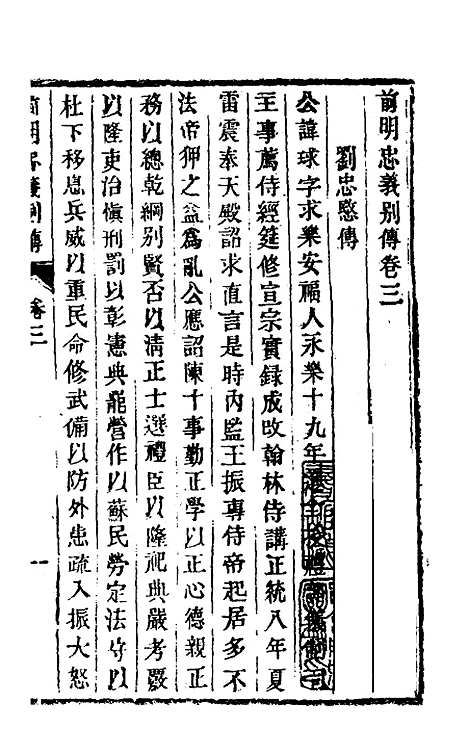 前明忠義別傳卷三
劉忠愍傳
公諱球字求樂安福人永樂十九年進士授禮部儀制司
主事薦侍經筵修宣宗實録成改翰林侍講正統八年夏
雷震奉天殿詔求直言是時内監王振專侍帝起居多不
法帝狎之益爲亂公應詔陳十事勤正學以正心德親正
務以總乾綱別賢否以淸正士選禮臣以隆祀典嚴考覈
以隆吏治愼刑罰以彰憲典罷營作以蘇民勞定法守以
杜下移息兵威以重民命修武備以防外患疏入振大怒
前明忠義別傳
卷三
一